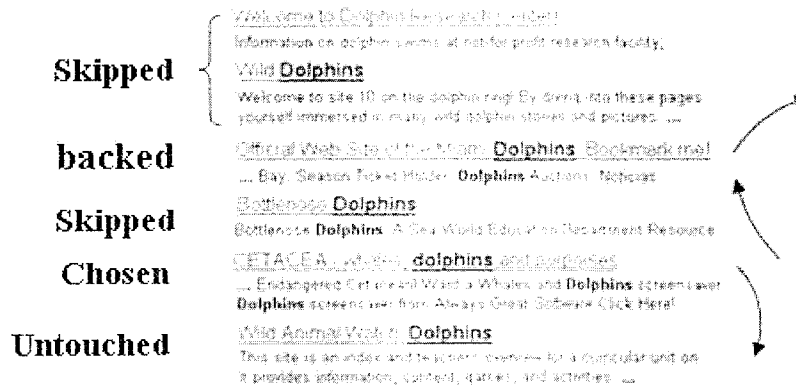 Welcome to Dolphin Research Center!
Information on dolphin swims at not-for profit research facility,
Skipped
Wild Dolphins
Welcome to site 10 on the dolphin ring! By diving into these pages
yourself immersed in many wild dolphin stories and pictures. ...
backed
Official Web Site of the Miami Dolphins. Bookmark me!
... Bay, Season Ticket Holder, Dolphins Auctions, Noticias
Bottlenose Dolphins
Skipped
Bottlenose Dolphins. A Sea World Education Department Resource
CETACEA: whales, dolphins and porpoises
Chosen
... Endangered Cetacean! Ward's Whales and Dolphins screensaver
Dolphins screensaver from Always Great Software Click Here!
Untouched
Wild Animal Watch: Dolphins
This site is an index and teachers for a curricular unit on
it provides information, content, games, and activities. ...